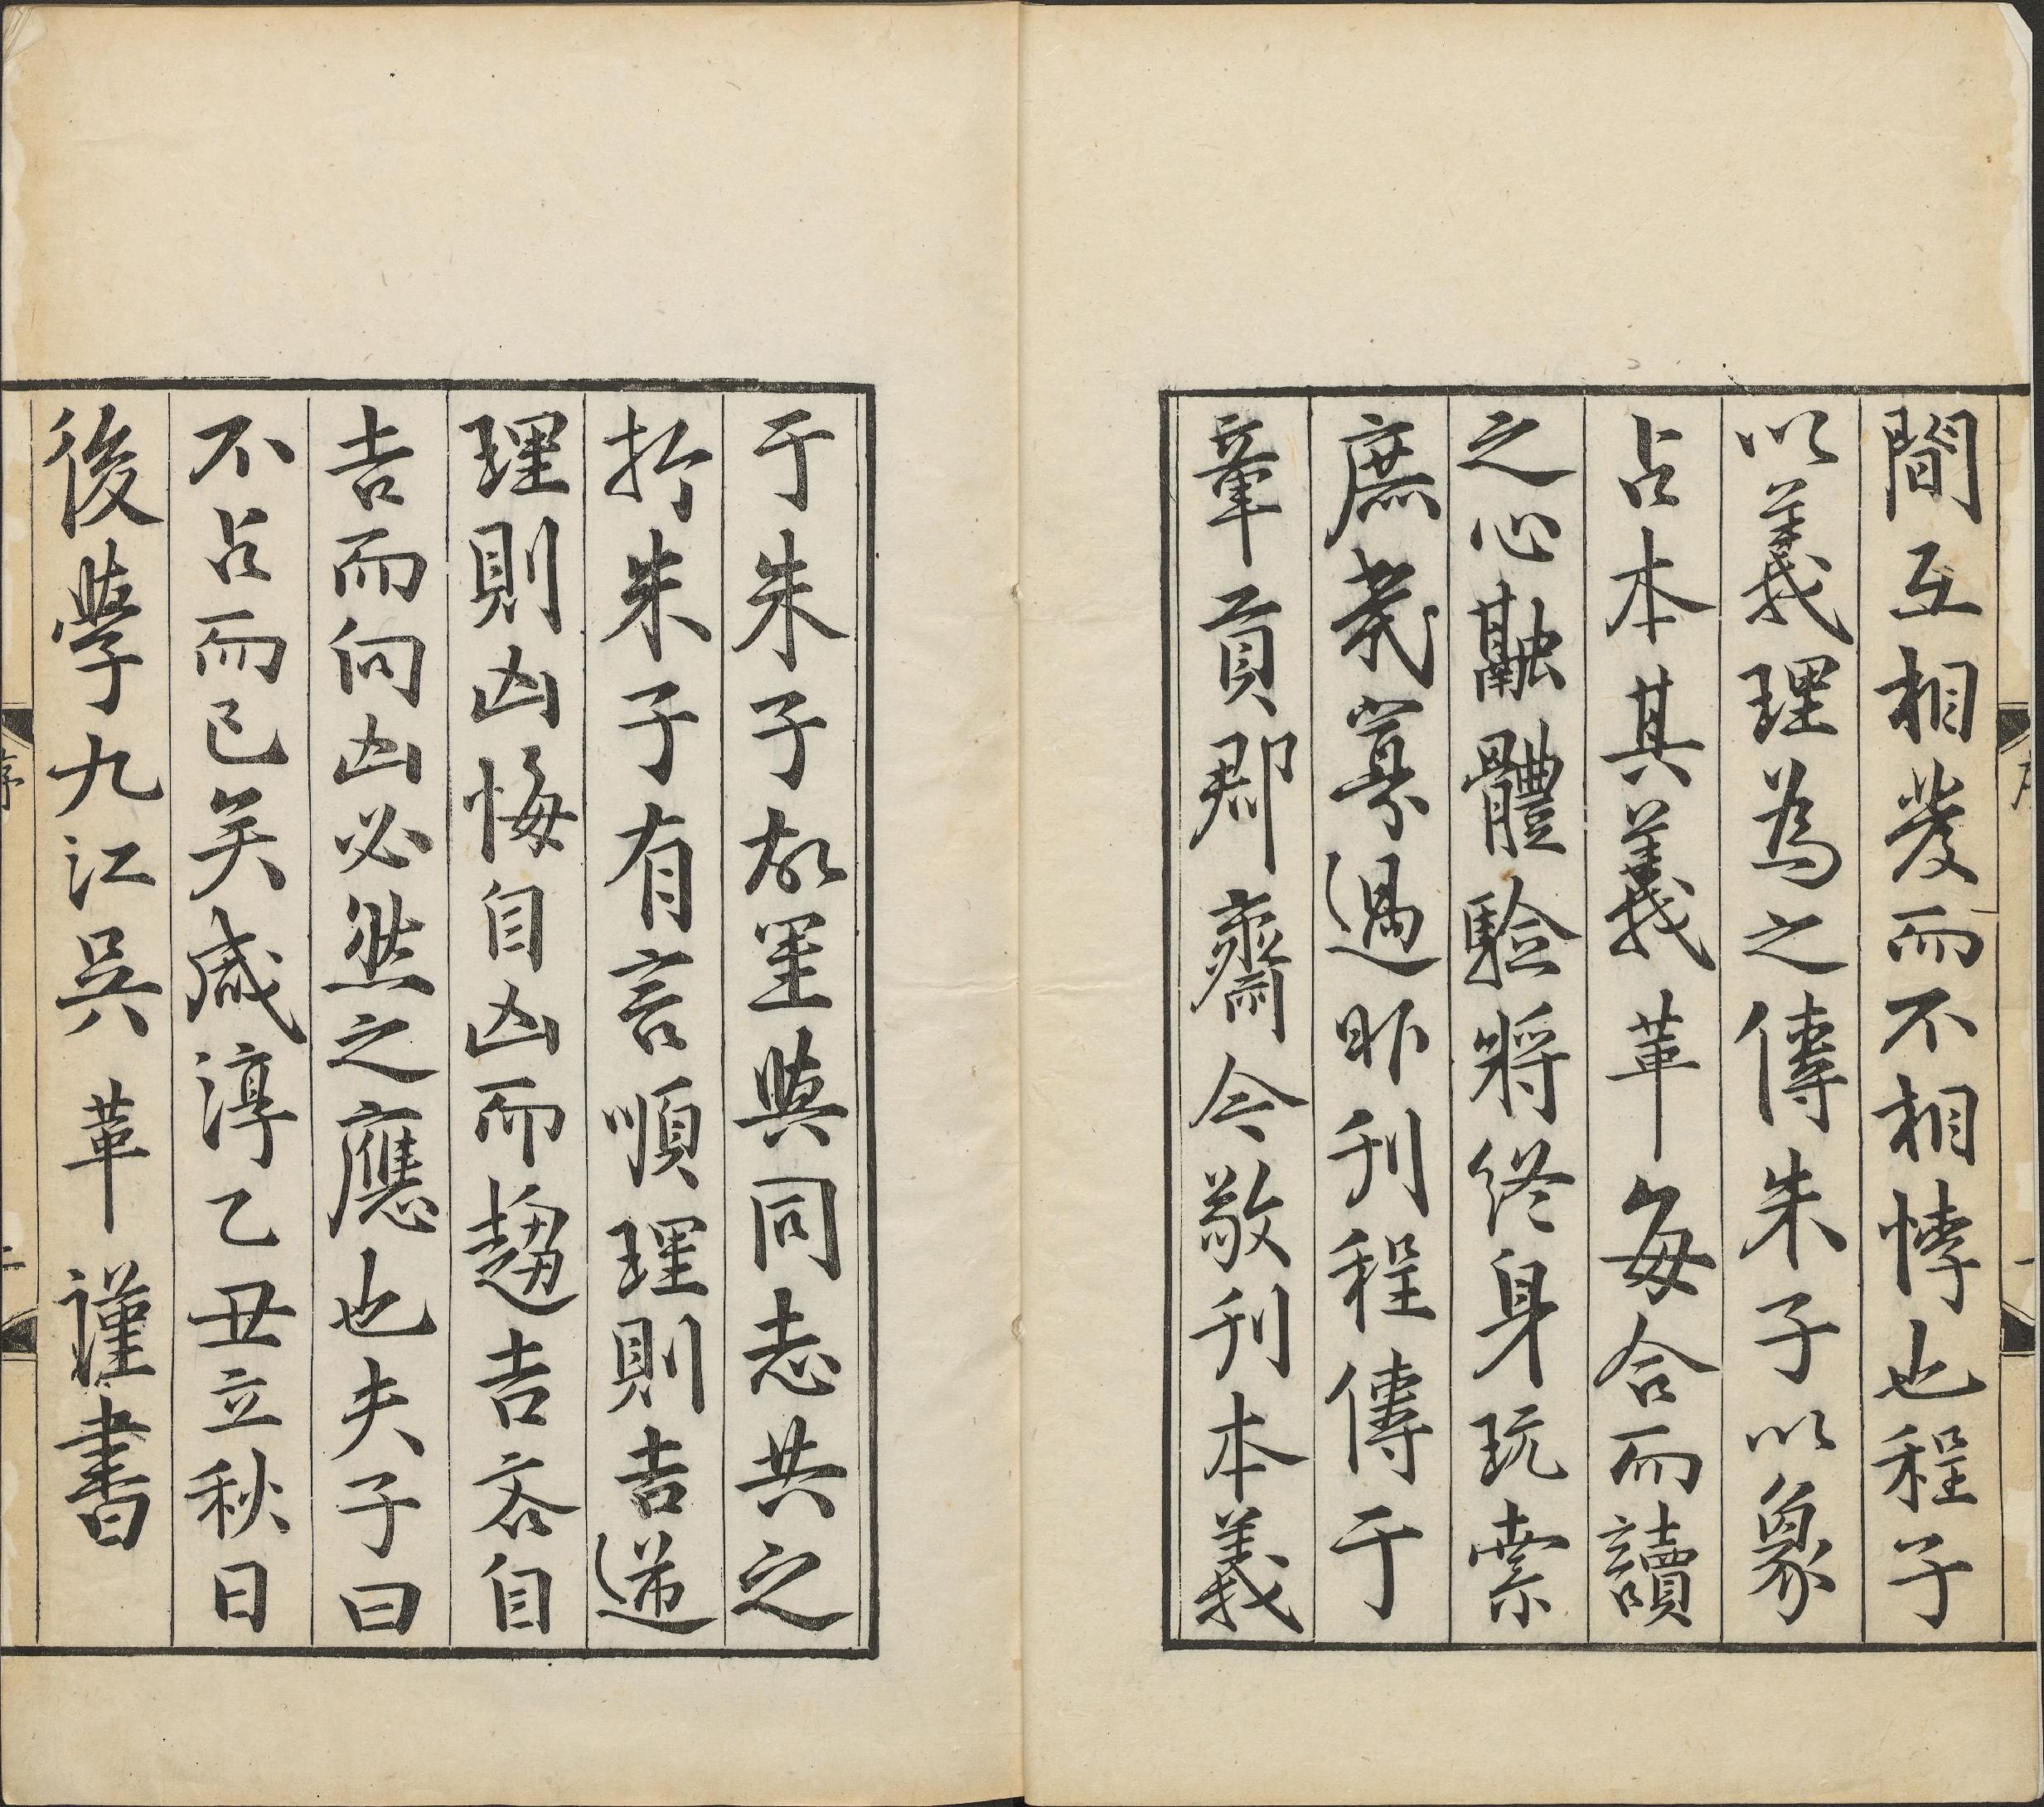 間互相發而不相悖也程子
以義理為之傳朱子以象
占本其義革每合而讀
之心融體驗將終身玩索
庶幾寡過昨刊程傳于
章貢郡齋今敬刊本義
于朱子故里與同志共之
抑朱子有言順理則吉逆
理則凶悔自凶而趨吉吝自
吉而向凶必然之應也夫子曰
不占而已矣咸淳乙丑立秋日
後學九江吳革謹書
序
二